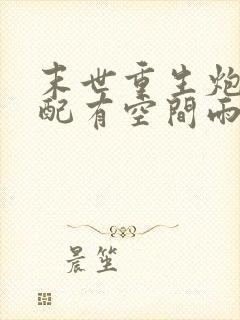 末世重生炮
配有空間雨
晨笙